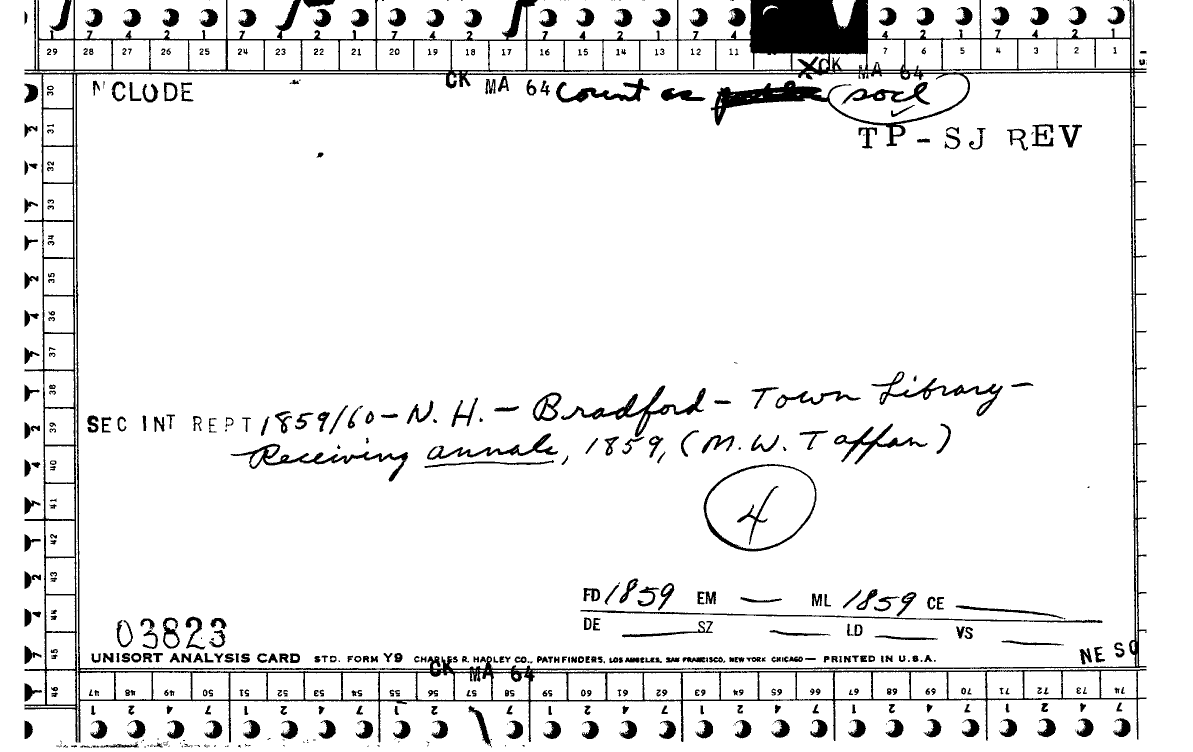 7 4 2 1 7 4 2 1 7 4 2 1 7 4 2 1 7 4 2 1
29 28 27 26 25 24 23 22 21 20 19 18 17 16 15 14 13 12 11 7 6 5 4 3 2 1
XCK MA 64
NCLUDE CK MA 64 Count as socl
TP-SJ REV
30
31
32
33
34
35
36
37
38
SEC INT REPT 1859/60 - N. H. - Bradford - Town Library -
39
Receiving annals, 1859, (M. W. Tappan)
40
41
4
42
43
FD 1859 EM — ML 1859 CE
44
DE SZ LD VS
03823
45
UNISORT ANALYSIS CARD STD. FORM Y9 CHARLES R. HADLEY CO., PATHFINDERS, LOS ANGELES, SAN FRANCISCO, NEW YORK CHICAGO — PRINTED IN U.S.A. NE SO
CK MA 64
46 47 48 49 50 51 52 53 54 55 56 57 58 59 60 61 62 63 64 65 66 67 68 69 70 71 72 73 74
1 2 4 7 1 2 4 7 1 2 7 1 2 4 7 1 2 4 7 1 2 4 7 1 2 4 7